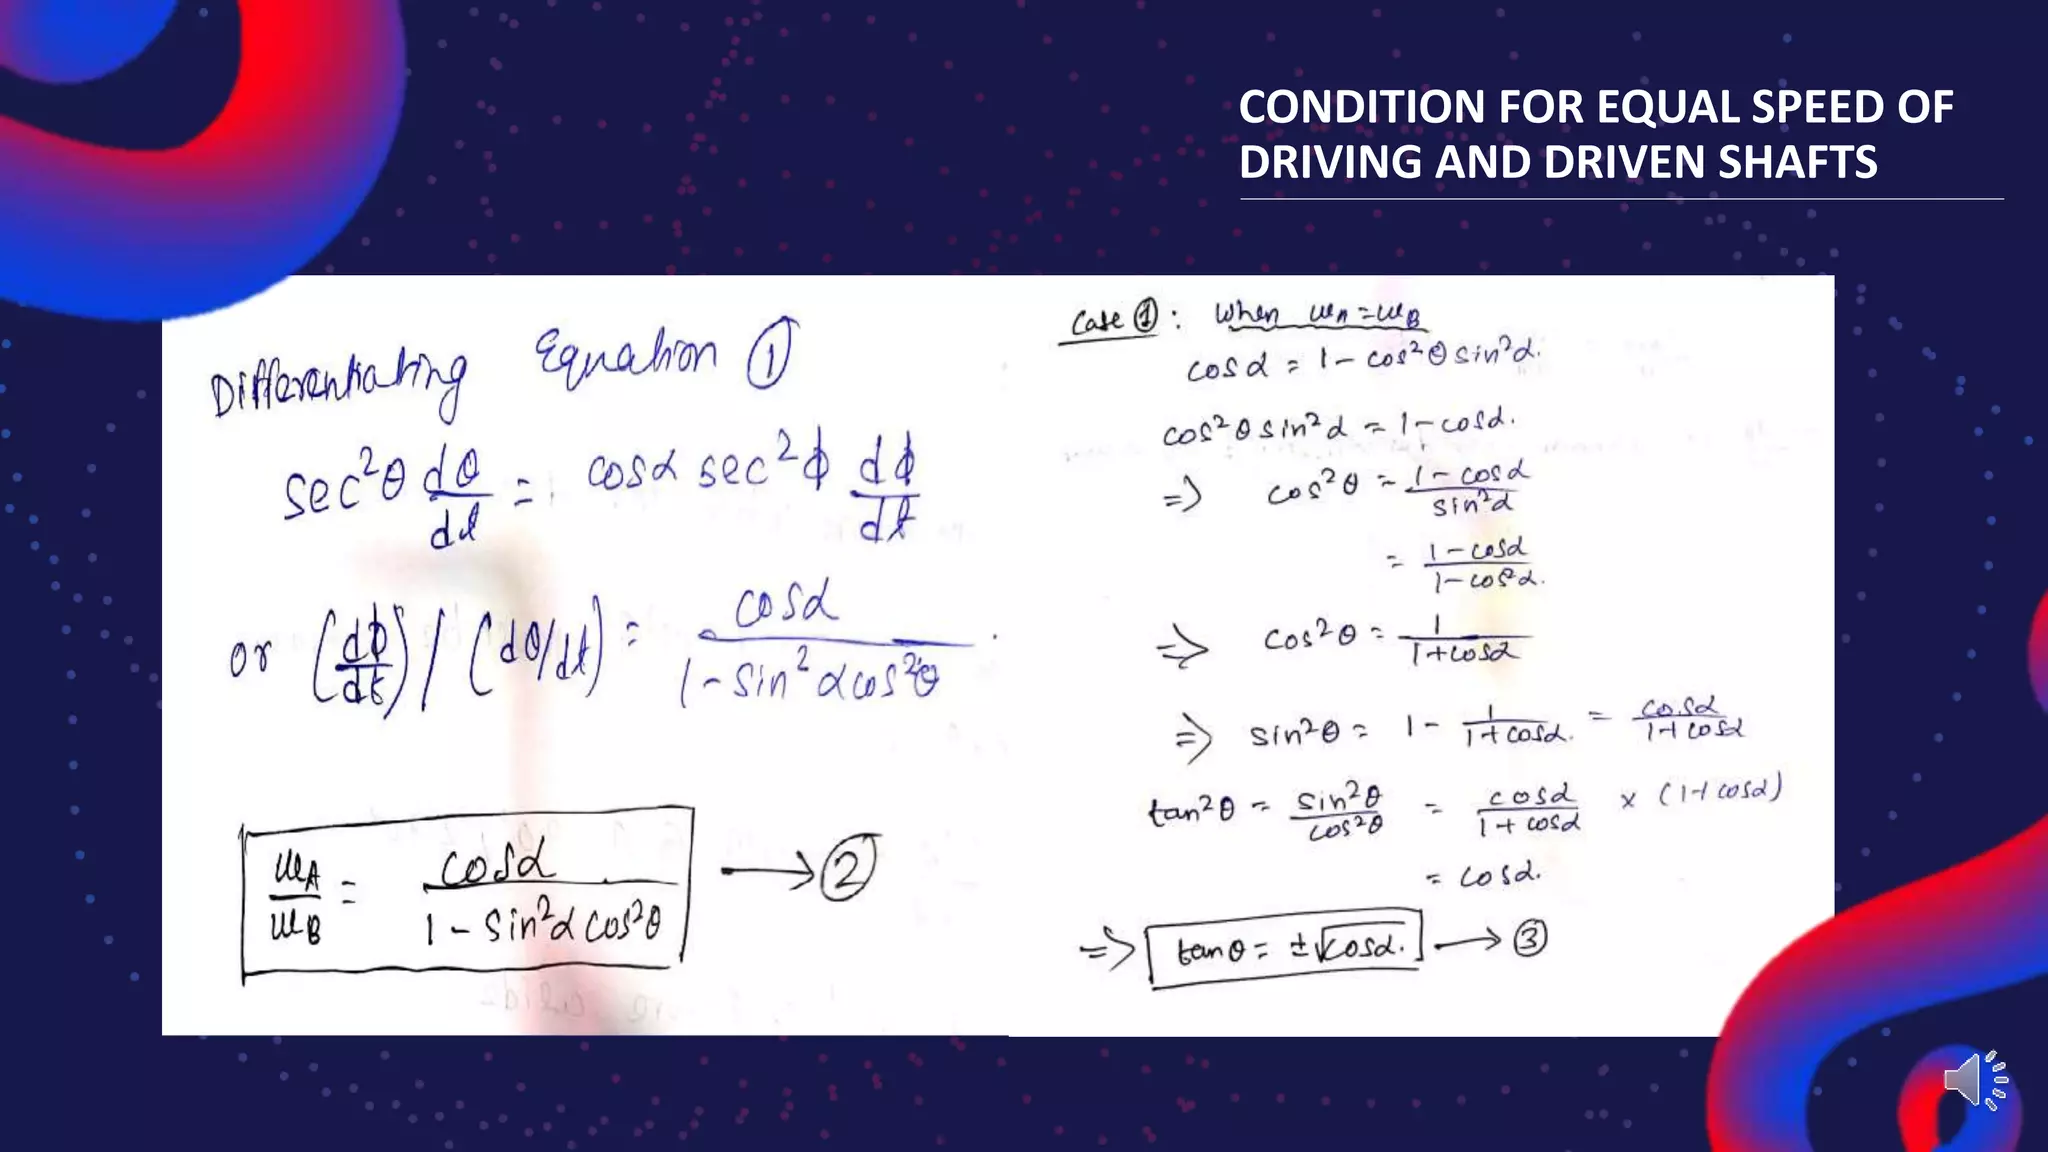 CONDITION FOR EQUAL SPEED OF
DRIVING AND DRIVEN SHAFTS
Differentiating Equation ①
sec²θ dθ/dt = cosα sec²ϕ dϕ/dt
or (dϕ/dt) / (dθ/dt) = cosα / 1-sin²αcos²θ
ωA/ωB = cosα / 1-sin²αcos²θ → ②
Case ①: When ωA=ωB
cosα = 1-cos²θsin²α.
cos²θsin²α = 1-cosα.
=> cos²θ = 1-cosα / sin²α
= 1-cosα / 1-cos²α.
=> cos²θ = 1 / 1+cosα
=> sin²θ = 1 - 1 / 1+cosα. = cosα / 1+cosα
tan²θ = sin²θ / cos²θ = cosα / 1+cosα × (1+cosα)
= cosα.
=> tanθ = ±√cosα. → ③